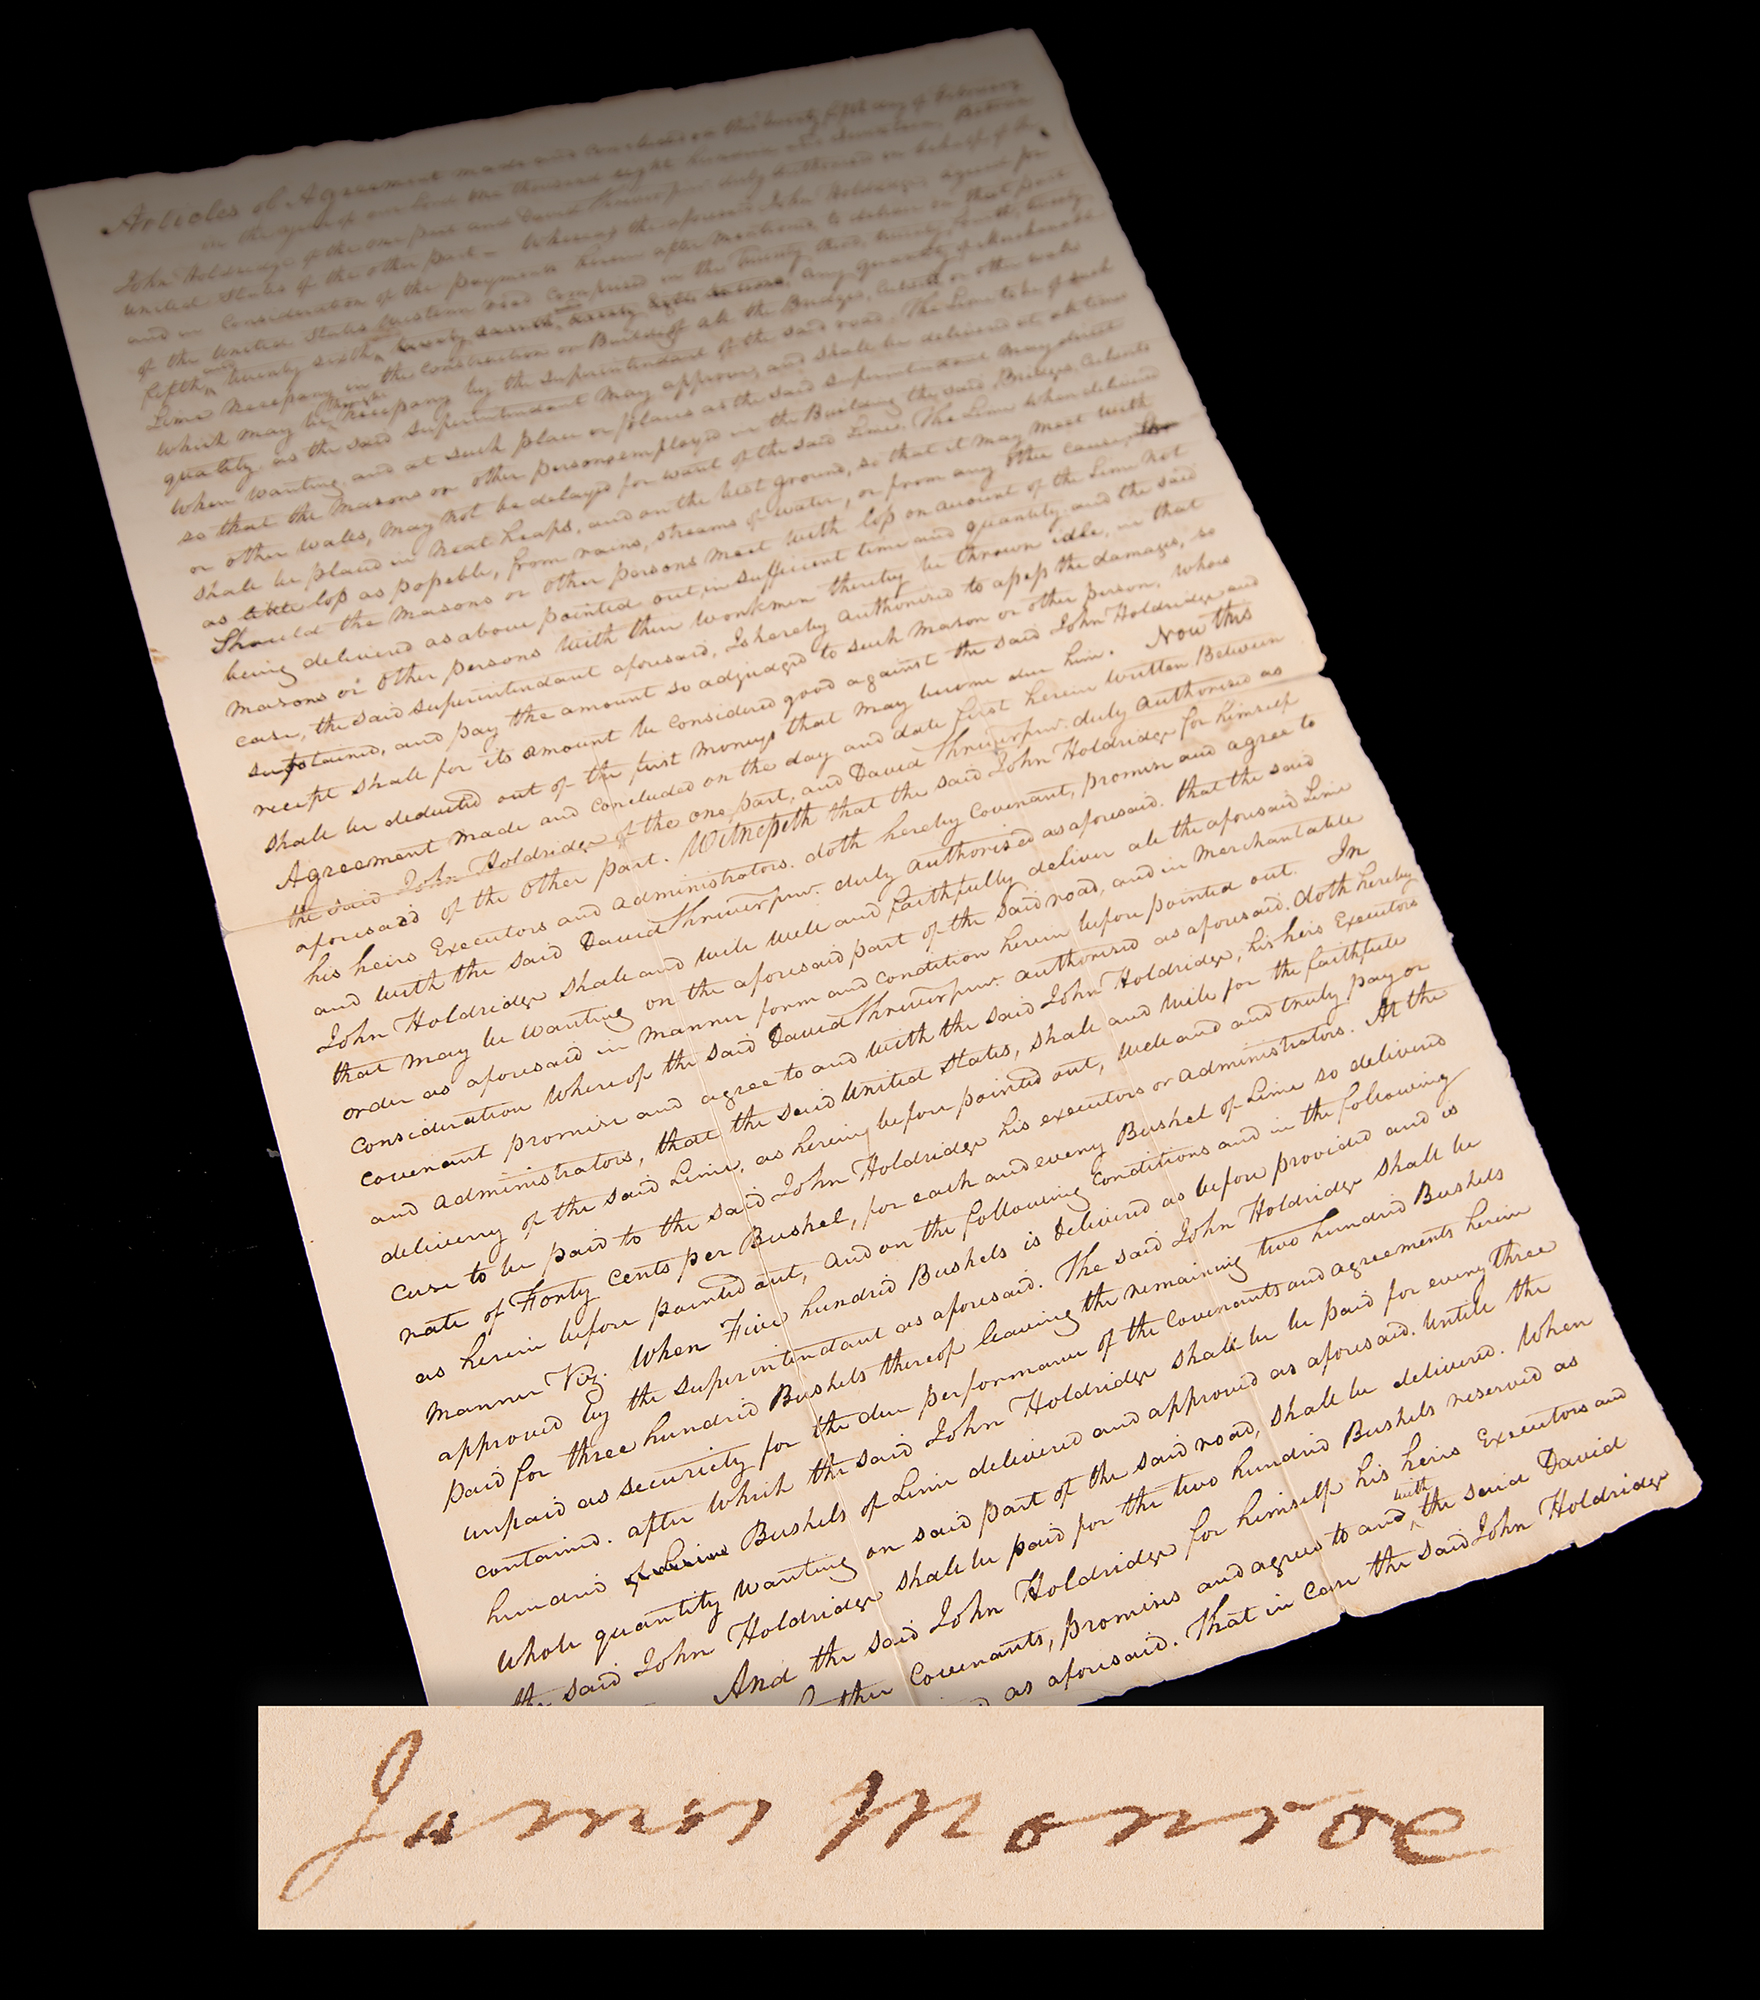 Articles of Agreement made and concluded on this twenty fifth day of February
in the year of our Lord one thousand eight hundred and seventeen, Between
John Holdridge of the one part and David Shriver junr duly authorised on behalf of the
United States of the other part – Whereas the aforesaid John Holdridge agrees for
and in Consideration of the payments herein after mentioned, to deliver on that part
of the United States Western road comprised in the twenty third, twenty fourth, twenty
fifth and twenty sixth, twenty seventh, twenty eighth sections, any quantity of Merchantable
Lime Necessary in the Construction or Building of all the Bridges, Culverts or other walls
which may be Necessary by the Superintendant of the said road. The Lime to be of such
quality as the said Superintendant may approve, and shall be delivered at all times
when wanting and at such place or places as the said Superintendant may direct
so that the Masons or other persons employed in the Building the said Bridges, Culverts
or other walls, may not be delayed for want of the said Lime. The Lime when delivered
shall be placed in neat heaps, and on the best ground, so that it may meet with
as little loss as possible, from rains, streams of water, or from any other cause, the
Should the Masons or other persons meet with loss on account of the Lime not
being delivered as above pointed out, in sufficient time and quantity, and the said
Masons or other persons with their workmen thereby be thrown idle, in that
case, the said Superintendant aforesaid, Is hereby authorised to assess the damages, so
sustained, and pay the amount so adjudged to such Mason or other person, whose
receipt shall for its amount be considered good against the said John Holdridge and
shall be deducted out of the first moneys that may become due him. Now this
Agreement made and concluded on the day and date first herein written Between
the said John Holdridge of the one part, and David Shriver junr. duly authorised as
aforesaid of the other part. Witnesseth that the said John Holdridge for himself
his heirs Executors and administrators. doth hereby Covenant, promise and agree to
and with the said David Shriver junr. duly authorised as aforesaid. that the said
John Holdridge shall and will well and faithfully deliver all the aforesaid Lime
that may be wanting on the aforesaid part of the said road, and in Merchantable
order as aforesaid in manner form and condition herein before pointed out. In
consideration whereof the said David Shriver junr. authorised as aforesaid. doth hereby
covenant promise and agree to and with the said John Holdridge, his heirs Executors
and administrators, that the said United States, shall and will for the faithfull
delivery of the said Lime, as herein before pointed out, well and and truly pay or
case to be paid to the said John Holdridge his executors or administrators. At the
rate of Forty Cents per Bushel, for each and every Bushel of Lime so delivered
as herein before pointed out, and on the following Conditions and in the following
manner Viz. When Five hundred Bushels is delivered as before provided and is
approved by the Superintendant as aforesaid. The said John Holdridge shall be
paid for three hundred Bushels thereof leaving the remaining two hundred Bushels
unpaid as securiety for the due performance of the Covenants and agreements herein
contained. after which the said John Holdridge shall be be paid for every three
hundred of Lime Bushels of Lime delivered and approved as aforesaid. untill the
whole quantity wanting on said part of the said road, shall be delivered. When
the said John Holdridge shall be paid for the two hundred Bushels reserved as
And the said John Holdridge for himself his heris Executors and
Covenants, promises and agrees to and with the said David
as aforesaid. That in Case the said John Holdridge
James Monroe